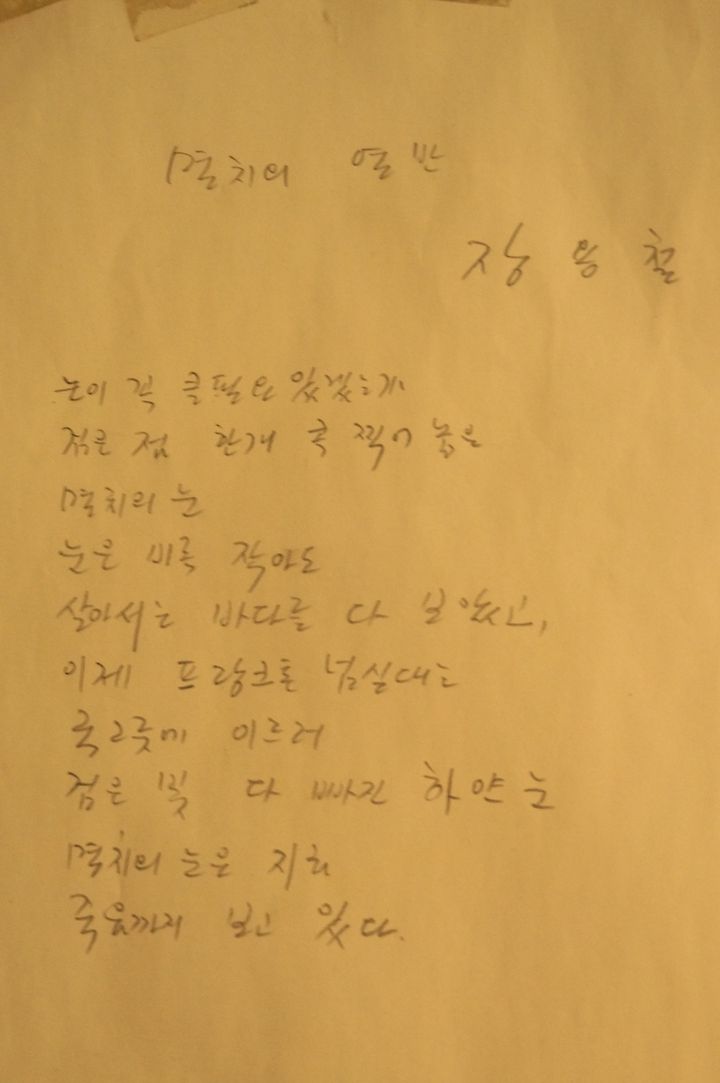 멸치의 열반
장용철
눈이 꼭 클필요 있겠는가
검은 점 한개 콕 찍어 놓은
멸치의 눈
눈은 비록 작아도
살아서는 바다를 다 보았고,
이제 프랑크톤 넘실대는
국그릇에 이르러
검은 빛 다 빠진 하얀눈
멸치의 눈은 지금
죽음까지 보고 있다.